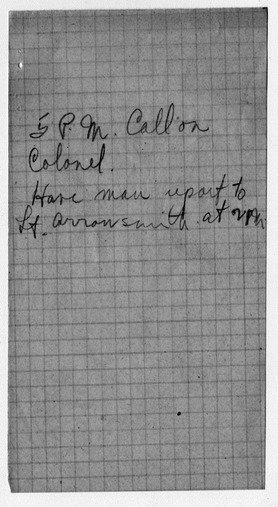 5 P.M. Call on
Colonel.
Have man report to
Lt. Arrowsmith at 2 PM